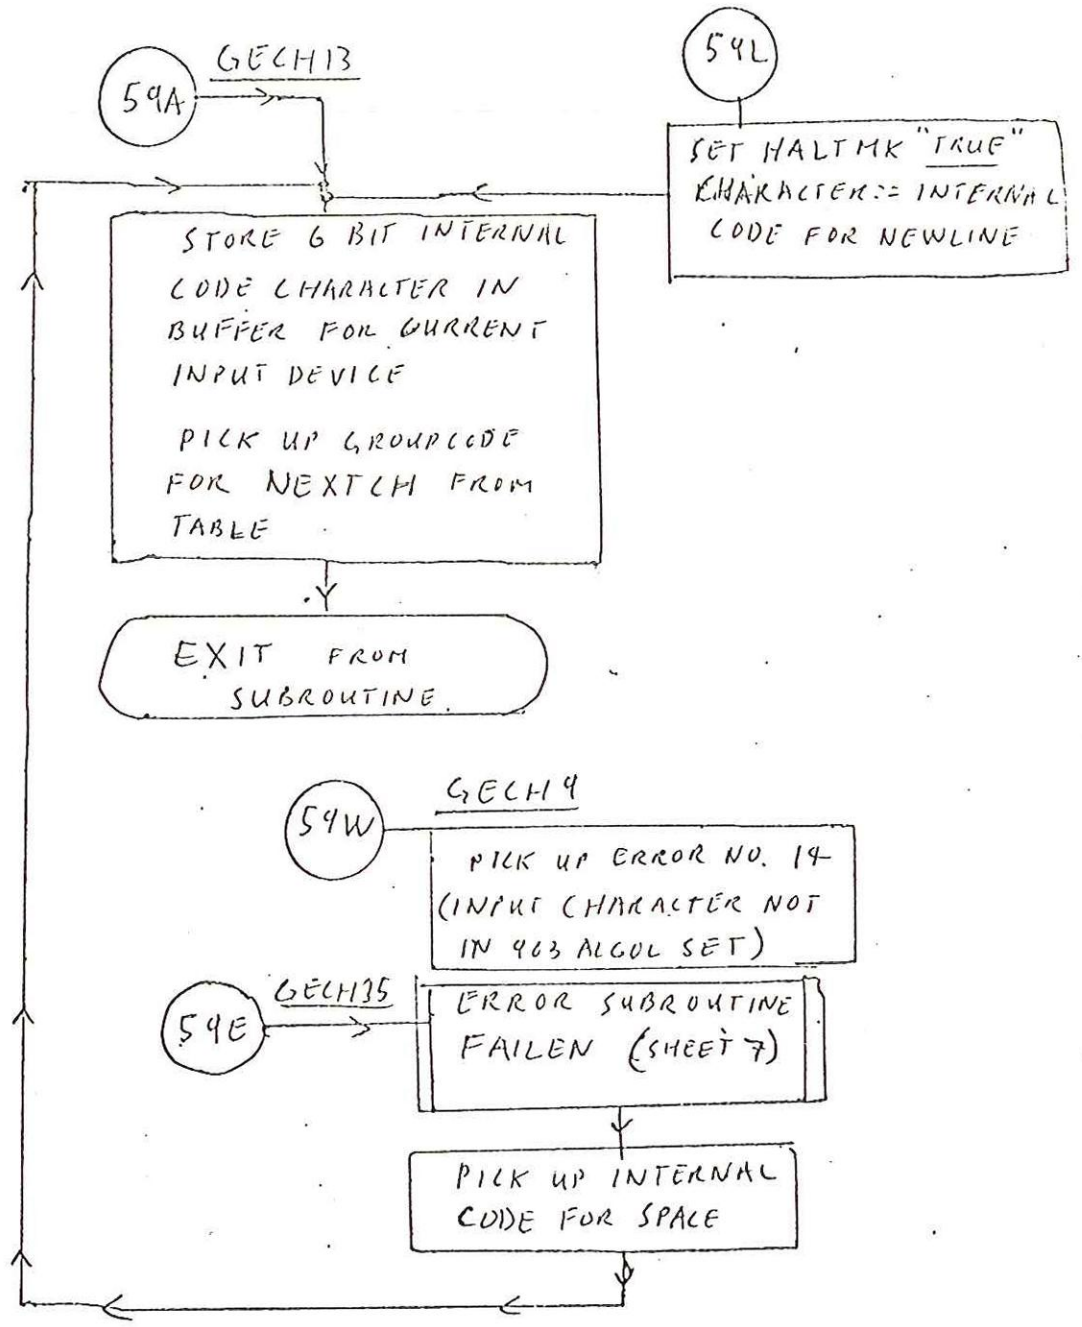 GECH13
59A
59L
SET HALTMK "TRUE"
CHARACTER:= INTERNAL
CODE FOR NEWLINE
STORE 6 BIT INTERNAL
CODE CHARACTER IN
BUFFER FOR CURRENT
INPUT DEVICE
PICK UP GROUPCODE
FOR NEXTCH FROM
TABLE
EXIT FROM
SUBROUTINE.
GECH9
59W
PICK UP ERROR NO. 14
(INPUT CHARACTER NOT
IN 903 ALGOL SET)
GECH35
59E
ERROR SUBROUTINE
FAILEN (SHEET 7)
PICK UP INTERNAL
CODE FOR SPACE